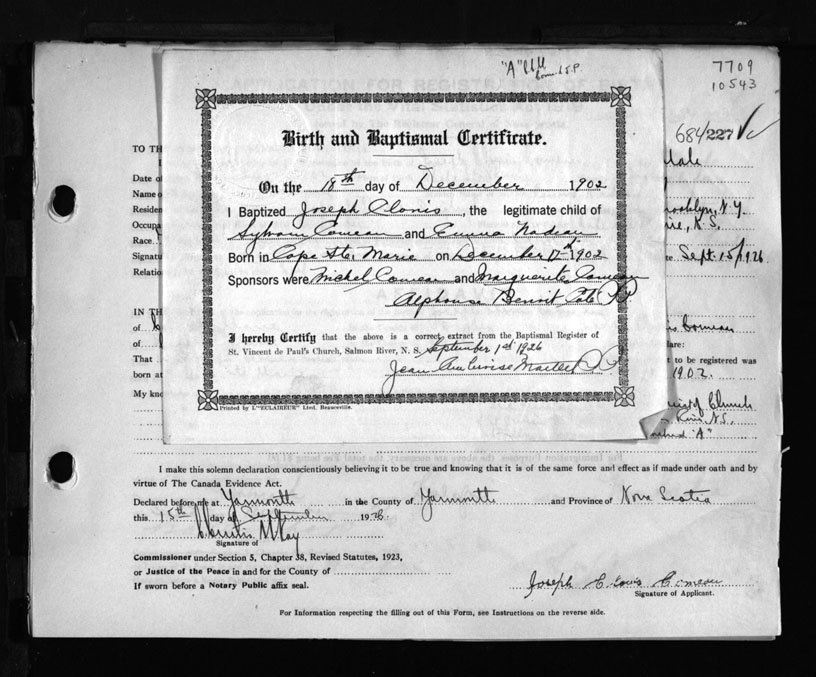 "A"
7709
10543
684/227
TO TH
Date o
Name o
Residen
Occupa
Race
Signatu
Relatio
IN TH
of
of
That
born at
My kno
Male
Brooklyn, N.Y.
N.S.
Sept. 15/1926
Comeau
lare:
t to be registered was
1902.
of Church
N.S.
"A"
Birth and Baptismal Certificate.
On the 18th day of December 1902
I Baptized Joseph Clovis, the legitimate child of
Sylvain Comeau and Emma Nadeau
Born in Cape Ste. Marie on December 17th 1902
Sponsors were Michel Comeau and Marguerite Comeau
Alphonse Benoit Coté P.P.
I hereby Certify that the above is a correct extract from the Baptismal Register of
St. Vincent de Paul's Church, Salmon River, N. S. September 1st 1926
Jean Ambroise P.P.
Printed by L'"ECLAIREUR" Ltd. Beauceville.
I make this solemn declaration conscientiously believing it to be true and knowing that it is of the same force and effect as if made under oath and by
virtue of The Canada Evidence Act.
Declared before me at Yarmouth in the County of Yarmouth and Province of Nova Scotia
this 15th day of September 1926.
Signature of
Commissioner under Section 5, Chapter 38, Revised Statutes, 1923,
or Justice of the Peace in and for the County of
If sworn before a Notary Public affix seal.
Joseph Clovis Comeau
Signature of Applicant.
For Information respecting the filling out of this Form, see Instructions on the reverse side.